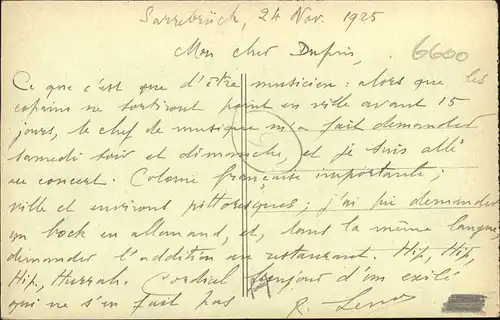 Sarrebrück, 24 Nov. 1925
Mon cher Dupin,
6600
Ce que c'est que d'être musicien : alors que les
copains ne sortiront point en ville avant 15
jours, le chef de musique m'a fait demander
samedi soir et dimanche, et je suis allé
au concert. Colonie française importante ;
ville et environs pittoresques ; j'ai pu demander
un bock en allemand, et, dans la même langue,
demander l'addition au restaurant. Hip, Hip,
Hip, Hurrah. Cordial bonjour d'un exilé
qui ne s'en fait pas R.